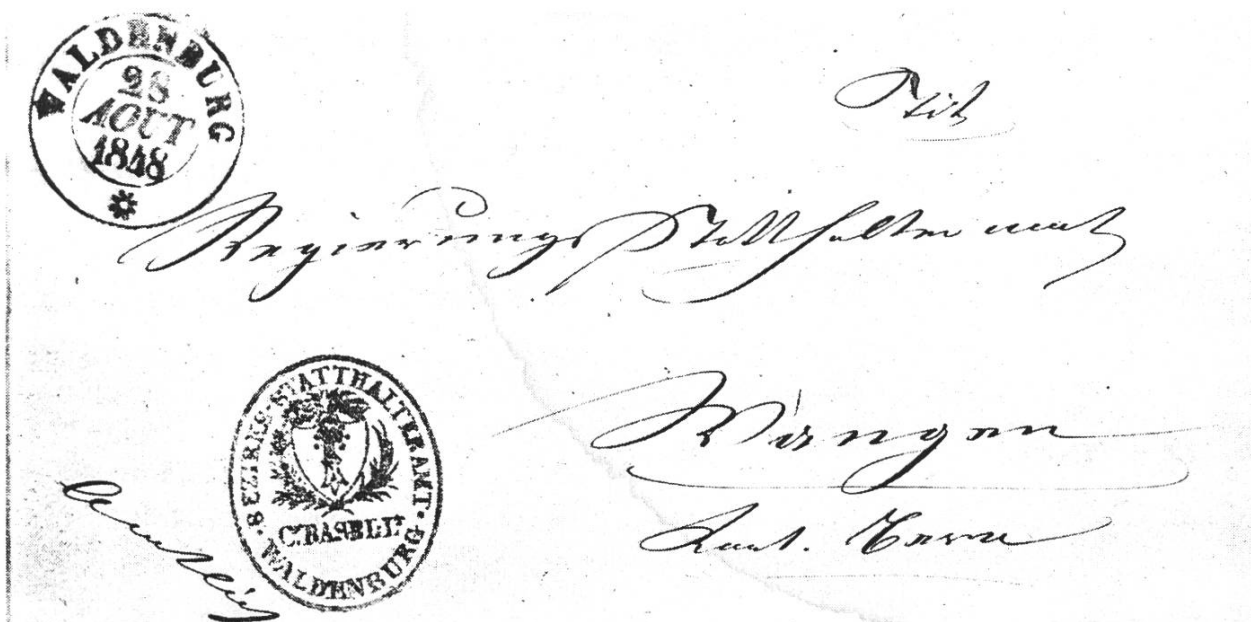 WALDENBURG
28
AOUT
1848
Tit
Regierungs Statthalteramt
Wangen
Kant. Bern
BEZIRKS-STATTHALTERAMT
Cn. BASELLt.
WALDENBURG
Amtlich